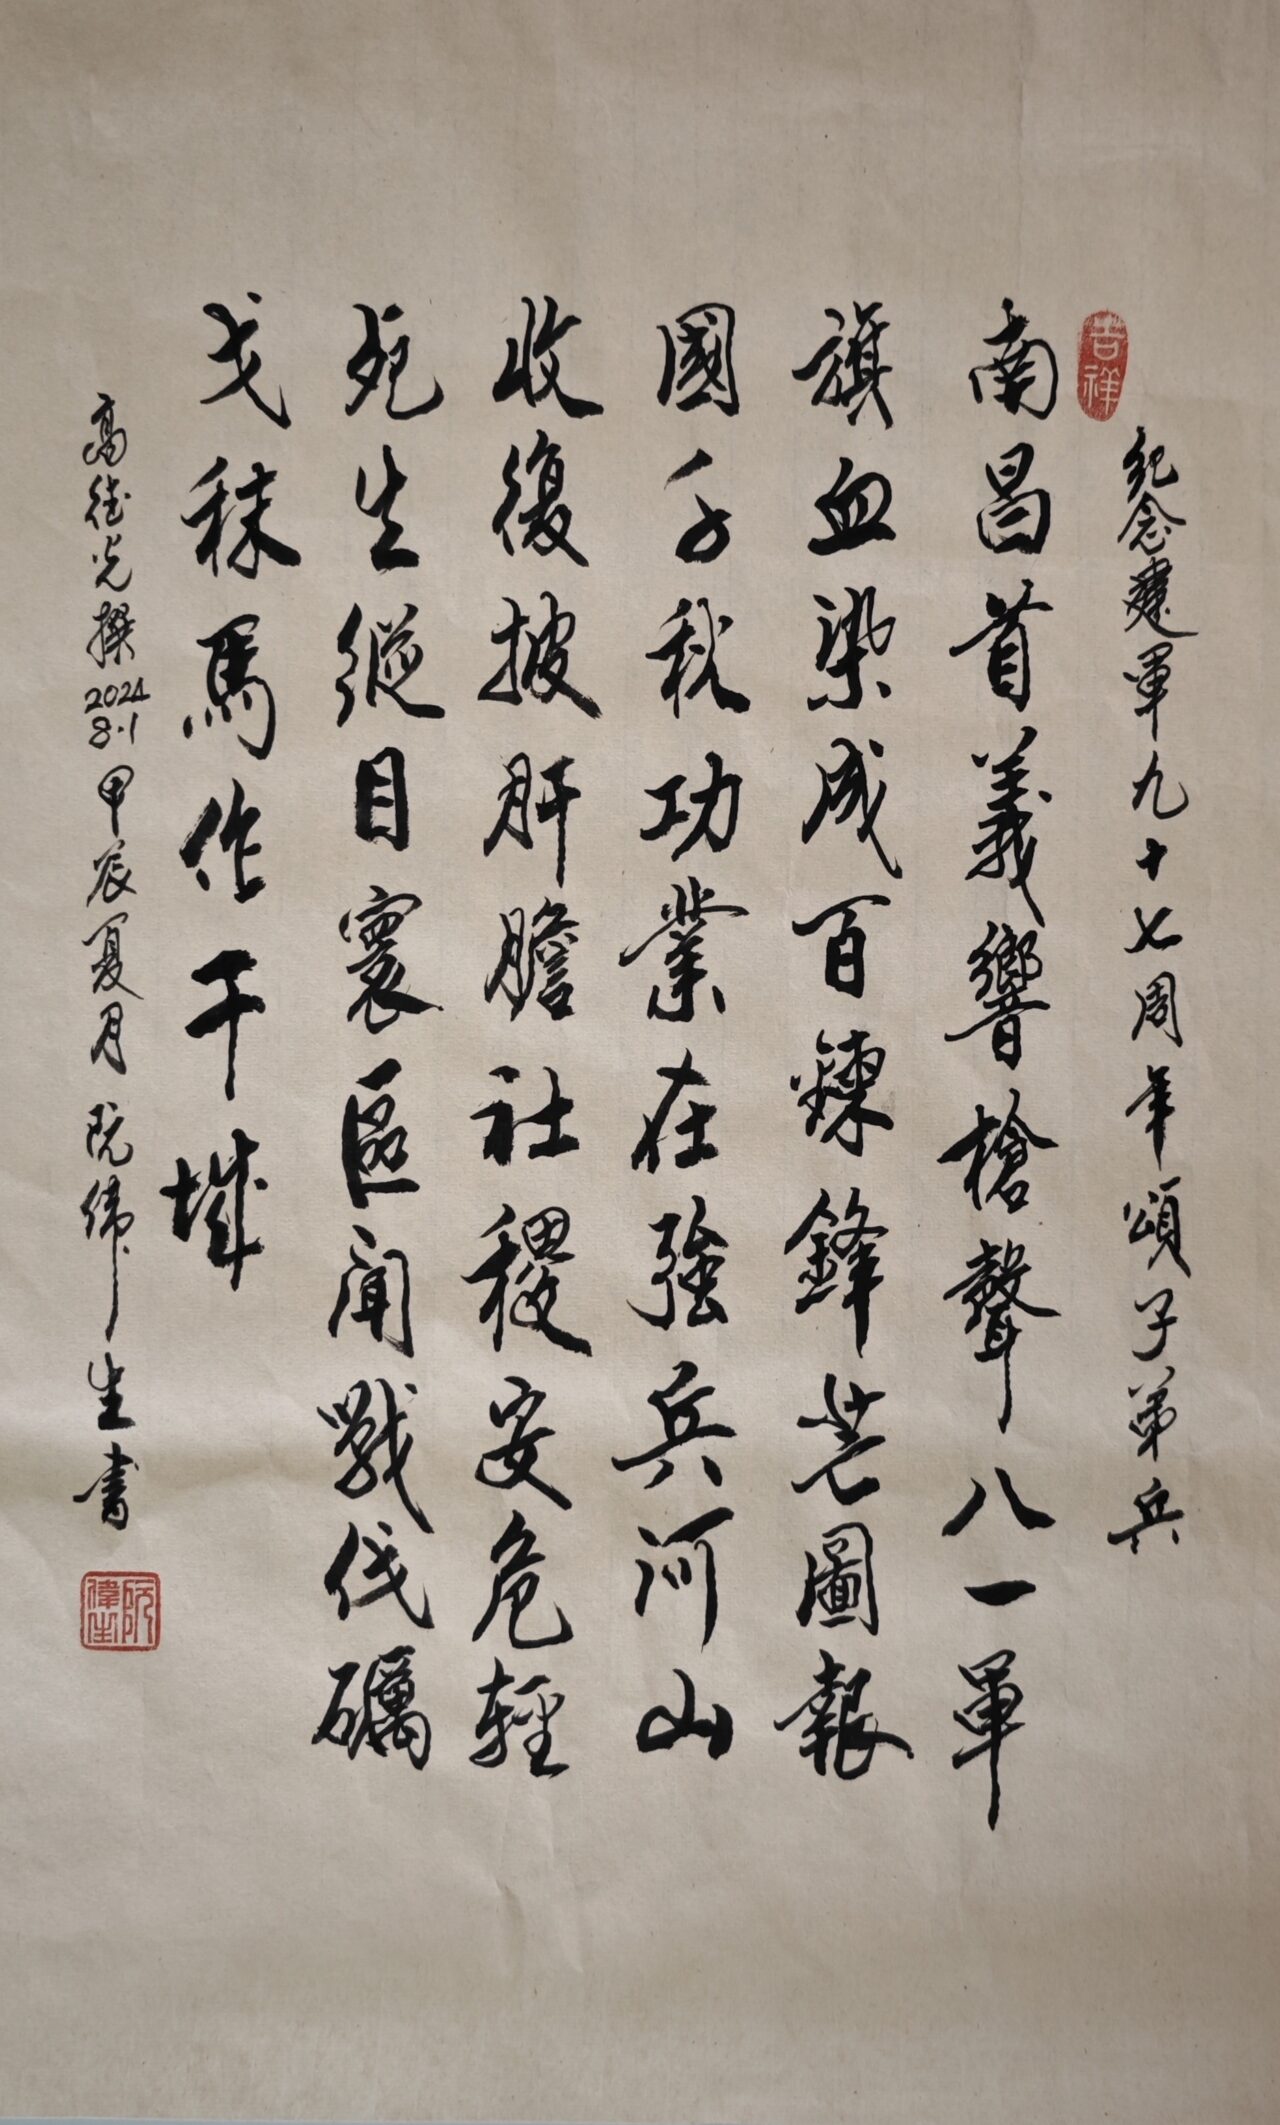 紀念建軍九十七周年頌子弟兵
吉祥
南昌首義響槍聲八一軍
旗血染成百鍊鋒芒圖報
國千秋功業在強兵河山
收復披肝膽社稷安危輕
死生縱目寰區聞戰伐礪
戈秣馬作干城
高德光撰2024 8·1甲辰夏月阮偉生書
阮偉生